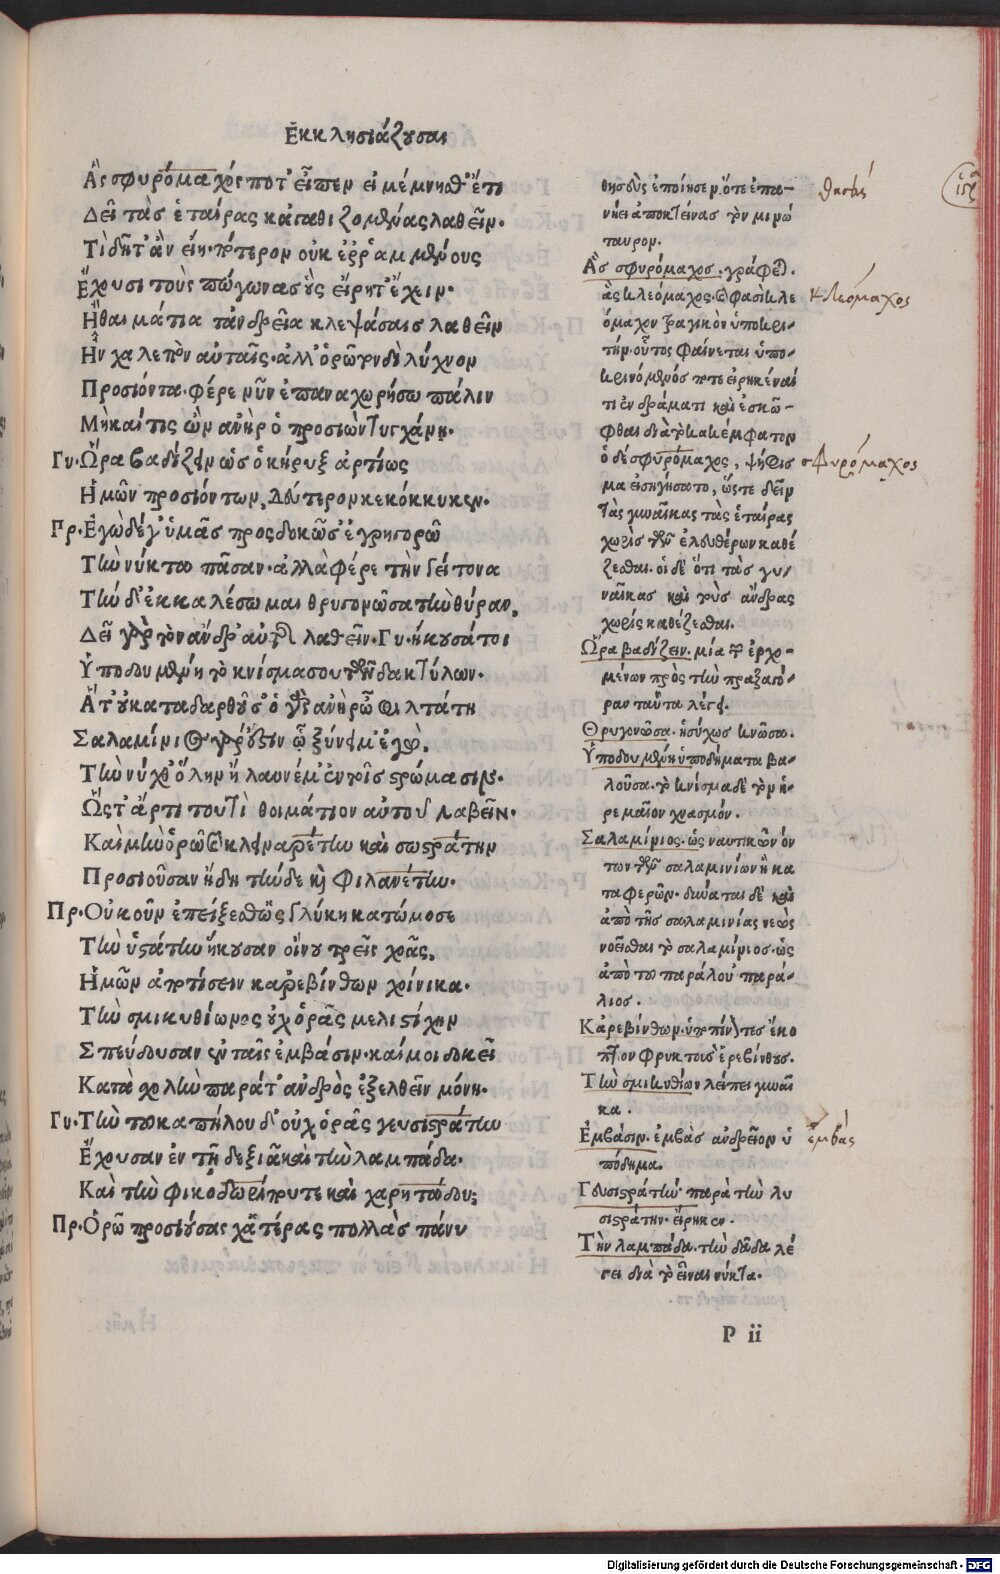 Ἐκκλησιάζουσαι
Ἃς σφυρόμαχός ποτ' εἶπεν εἰ μέμνησθ' ἔτι
Δεῖ τὰς ἑταίρας κἀγαθιζομένας λαθεῖν.
Τί δῆτ' ἂν εἴη. πότερον οὐκ ἐρραμμένους
Ἔχουσι τοὺς πώγωνας οὓς εἴρητ' ἔχειν.
Ἢ θαἰμάτια τἀνδρεῖα κλεψάσαις λαθεῖν
Ἦν χαλεπὸν αὐταῖς. ἀλλ' ὁρῶ τονδὶ λύχνον
Προσιόντα. φέρε νῦν ἐπαναχωρήσω πάλιν
Μὴ καί τις ὢν ἀνὴρ ὁ προσιὼν τυγχάνῃ.
Γυ. Ὥρα βαδίζειν ὡς ὁ κήρυξ ἀρτίως
Ἡμῶν προσιόντων, δεύτερον κεκόκκυκεν.
Πρ. Ἐγὼ δέ γ' ὑμᾶς προσδοκῶσ' ἐγρηγορῶ
Τὴν νύκτα πᾶσαν. ἀλλὰ φέρε τὴν γείτονα
Τήν δ' ἐκκαλέσωμαι θρυγονῶσα τὴν θύραν,
Δεῖ γὰρ τὸν ἄνδρ' αὐτῆς λαθεῖν. Γυ. ἤκουσά τοι
Ὑποδουμένη τὸ κνίσμα σου τῶν δακτύλων.
Ἅτ' οὐ καταδαρθοῦσ' ὁ γὰρ ἀνὴρ ὦ φιλτάτη
Σαλαμίνιος γάρ ἐστιν ᾧ ξύνειμ' ἐγώ.
Τὴν νύχθ' ὅλην ἤλαυνέ μ' ἐν τοῖς στρώμασιν.
Ὥστ' ἄρτι τουτὶ θοιμάτιον αὐτοῦ λαβεῖν.
Καὶ μὴν ὁρῶ καὶ κλειναρέτην καὶ σωστράτην
Προσιοῦσαν ἤδη τήνδε καὶ φιλαινέτην.
Πρ. Οὐκοῦν ἐπείξεσθ' ὡς γλύκη κατώμοσε
Τὴν ὑστάτην ἥκουσαν οἴνου τρεῖς χοᾶς,
Ἡμῶν ἀποτίσειν καρεβίνθων χοίνικα.
Τὴν σμικυθίωνος οὐχ ὁρᾷς μελιστίχην
Σπεύδουσαν ἐν ταῖς ἐμβάσιν. καί μοι δοκεῖ
Κατὰ χολὴν παρά τ' ἀνδρὸς ἐξελθεῖν μόνη.
Γυ. Τὴν τοῦ καπήλου δ' οὐχ ὁρᾷς γευσιστράτην
Ἔχουσαν ἐν τῇ δεξιᾷ καὶ τὴν λαμπάδα.
Καὶ τὴν φιλοδωρίτου τε καὶ χαρητάδου;
Πρ. Ὁρῶ προσιούσας χἀτέρας πολλὰς πάνυ
θησεὺς ἐποίησεν. ὅτε ἐπα-
νῄει ἀποκτείνας τὸν μινώ
ταυρον.
Ἃς σφυρόμαχος. γράφεται
ἃς κλεόμαχος. καὶ φασὶ κλε
όμαχον τραγικὸν ὑποκρι-
τήν. οὗτος φαίνεται ὑπο-
κρινόμενός ποτε εἰρηκέναι
τι ἐν δράματι καὶ ἐσκῶ-
φθαι διὰ τὸ κακέμφατον
ὁ δὲ σφυρόμαχος, ψήφισ
μα εἰσηγήσατο, ὥστε δεῖν
τὰς γυναῖκας τὰς ἑταίρας
χωρὶς τῶν ἐλευθέρων καθέ
ζεσθαι. οἱ δὲ ὅτι τὰς γυ-
ναῖκας καὶ τοὺς ἄνδρας
χωρὶς καθέζεσθαι.
Ὥρα βαδίζειν. μία τῶν ἐρχο-
μένων πρὸς τὴν πραξαγό-
ραν ταῦτα λέγει.
Θρυγονῶσα. ἡσύχως κνῶσα.
Ὑποδουμένη ὑποδήματα βα-
λοῦσα. τὸ κνίσμα δὲ τὸν ἠ-
ρεμαῖον χνασμόν.
Σαλαμίνιος. ὡς ναυτικῶν ὄν
των τῶν σαλαμινίων ἢ κα
ταφερῶν. δύναται δὲ καὶ
ἀπὸ τῆς σαλαμινίας νεὼς
νοεῖσθαι τὸ σαλαμίνιος. ὡς
ἀπὸ τοῦ παράλου παρά-
λιος.
Καρεβίνθων. ὑποπίνοντες ἔκο
πτον φρυκτοὺς ἐρεβίνθους.
Τὴν σμικυθίων λείπει γυναῖ
κα.
Ἐμβάσιν. ἐμβὰς ἀνδρεῖον ὑ
πόδημα.
Γευσιστράτην. παρὰ τὴν λυ
σιστράτην. εἴρηκεν.
Τὴν λαμπάδα. τὴν δᾷδα λέ
γει διὰ τὸ εἶναι νύκτα.
θησεύς
Κλεόμαχος
σφυρόμαχος
ἐμβάς
P ii
Digitalisierung gefördert durch die Deutsche Forschungsgemeinschaft - DFG